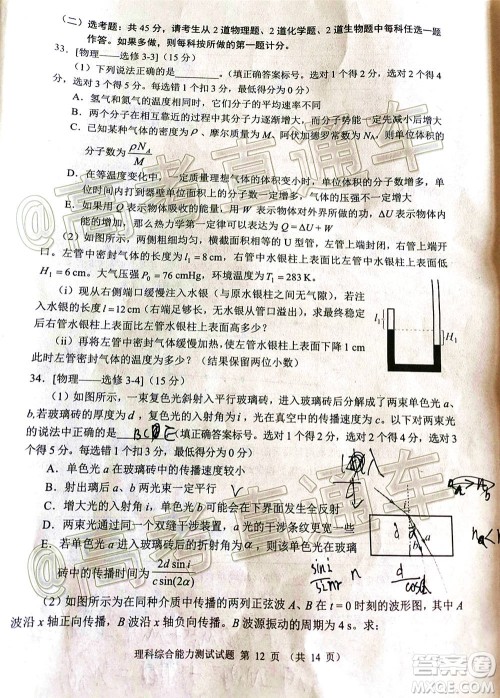 （二）选考题：共 45 分，请考生从 2 道物理题、2 道化学题、2 道生物题中每科任选一题
作答。如果多做，则每科按所做的第一题计分。
33.［物理——选修 3-3］（15 分）
（1）下列说法正确的是____。（填正确答案标号。选对 1 个得 2 分，选对 2 个得 4
分，选对 3 个得 5 分。每选错 1 个扣 3 分，最低得分为 0 分）
A．氢气和氮气的温度相同时，它们分子的平均速率不同
B．两个分子在相互靠近的过程中其分子力逐渐增大，而分子势能一定先减小后增大
C．已知某种气体的密度为 ρ、摩尔质量为 M、阿伏加德罗常数为 NA，则单位体积的
分子数为 ρNA/M
D．在等温度变化中，一定质量理想气体的体积变小时，单位体积的分子数增多，单
位时间内打到器壁单位面积上的分子数增多，气体的压强不一定增大
E．如果用 Q 表示物体吸收的能量，用 W 表示物体对外界所做的功，ΔU 表示物体内
能的增加，那么热力学第一定律可以表达为 Q=ΔU+W
（2）如图所示，两侧粗细均匀、横截面积相等的 U 型管，左管上端封闭，右管上端开
口。左管中密封气体的长度为 l1=8 cm，右管中水银柱上表面比左管中水银柱上表面低
H1=6 cm。大气压强 P0=76 cmHg，环境温度为 T1=283 K。
（i）现从右侧端口缓慢注入水银（与原水银柱之间无气隙），若注
入水银的长度 l=12 cm（右端足够长，无水银从管口溢出），求注入最
后右管水银柱上表面比左管水银柱上表面高多少？
（ii）再将左管中密封气体缓慢加热，使左右管中水银柱上表面等高，
此时左管中密封气体的温度为多少？（结果保留两位小数）
l1
H1
34.［物理——选修 3-4］（15 分）
（1）如图所示，一束复色光斜射入平行玻璃砖，进入玻璃砖后分解成了两束单色光 a、
b，若玻璃砖的厚度为 d，复色光的入射角为 i，光在真空中的传播速度为 c。以下对两束光
的说法中正确的是 BCDE。（填正确答案标号。选对 1 个得 2 分，选对 2 个得 4 分，选对
3 个得 5 分。每选错 1 个扣 3 分，最低得分为 0 分）
A．单色光 a 在玻璃砖中的传播速度较小
B．射出玻璃后 a、b 两束光一定平行
C．增大光的入射角，a、b 光在下界面有可能会发生全反射
D．两束光通过同一个双缝干涉装置，a 光的干涉条纹更宽一些
E．若单色光 a 进入玻璃砖后的折射角为 α，则
砖中的传播时间为 2d sin i/c sin(2α)
（2）如图所示为在同种介质中传播的两列正弦波 A、B 在 t=0 时刻的波形图，其中 A
波沿 x 轴正向传播，B 波沿 x 轴负向传播。B 波源振动的周期为 4 s。求：
理科综合能力测试试题 第 12 页 （共 14 页）
@高考直通车